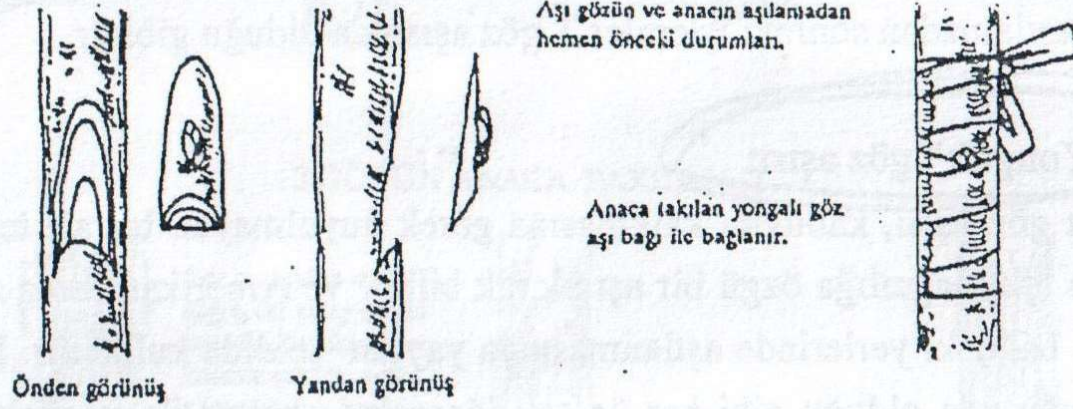 Aşı gözün ve anacın aşılamadan
hemen önceki durumları.
Anaca takılan yongalı göz
aşı bağı ile bağlanır.
Önden görünüş
Yandan görünüş